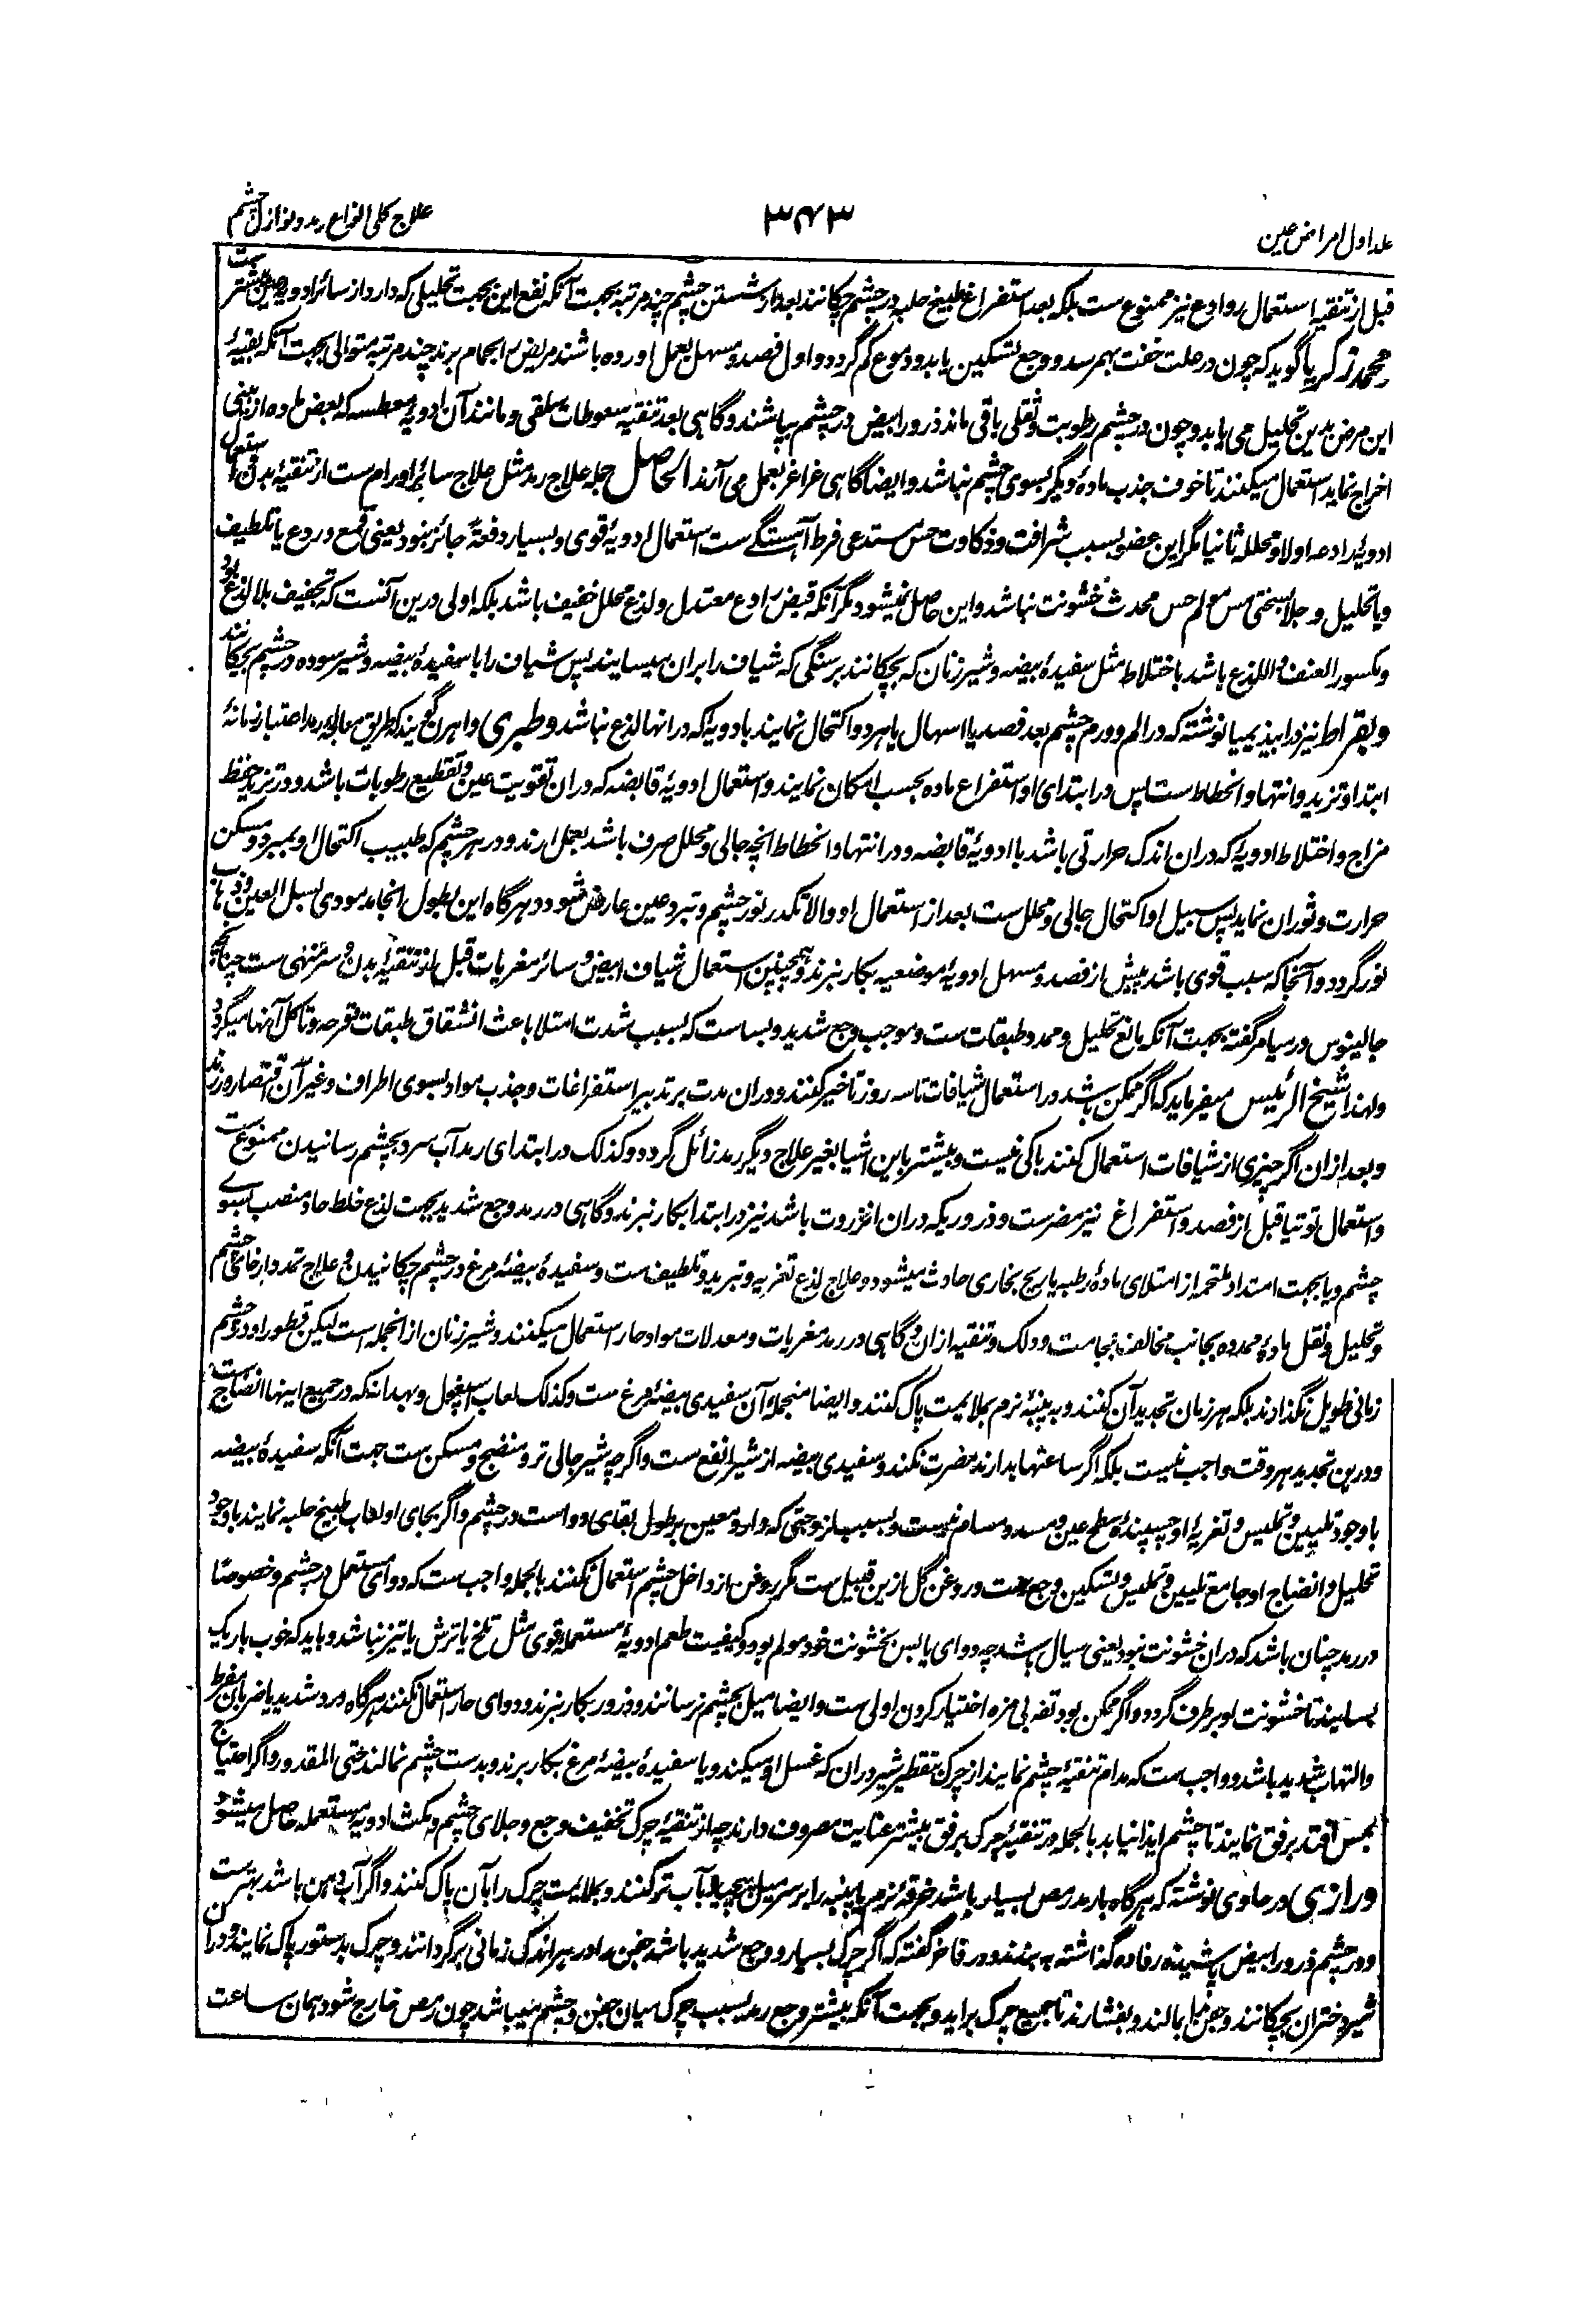 جلد اول امراض عین
۳۴۳
علاج کلی انواع رمد و نوازل چشم
قبل از تنقیه استعمال روادع نیز ممنوع ست بلکه بعد استفراغ طبیخ حلبه در چشم چکانند بعد از شستن چشم چند مرتبه بجهت آنکه نفع این بجهت تحلیلی که دارد از سائر ادویه بیشتر ست
محمد زکریا گوید که چون در علت خفت بهم رسد و وجع تسکین یابد و دموع کم گردد و اول فصد و مسهل بعمل آورده باشند مریض را بحمام برند چند مرتبه متوالی بجهت آنکه بقیهٔ
این مرض بدین تحلیل می یابد و چون در چشم رطوبت و ثقلی باقی ماند ذرور ابیض در چشم بپاشند و گاهی بعد تنقیه سعوطات سلقی و مانند آن ادویهٔ معطسه که بعض ماده از بینی
اخراج نماید استعمال میکنند تا خوف جذب مادهٔ دیگر بسوی چشم نباشد و ایضا گاهی غراغر بعمل می آرند الحاصل جمله علاج رمد مثل علاج سائر اورام ست از تنقیهٔ بدن و استعمال
ادویهٔ رادعه اولا و محلله ثانیا مگر این عضو بسبب شرافت و ذکاوت حس مستدعی فرط آهستگی ست استعمال ادویهٔ قوی و بسیار دفعةً جائز نبود یعنی قمع و ردع یا تلطیف
و یا تحلیل و جلا بسختی مس مولم حس محدث خشونت نباشد و این حاصل نمیشود مگر آنکه قبض رادع معتدل و لذع محلل خفیف باشد بلکه اولی درین آنست که تجفیف بلا لذع بود
و مکسور العنف و اللذع باشد باختلاط مثل سفیدهٔ بیضه و شیر زنان که بچکانند بر سنگی که شیاف را بران میسایند پس شیاف را با سفیدهٔ بیضه و شیر سوده در چشم بچکانند
و بقراط نیز در ابیذیمیا نوشته که در الم و ورم چشم بعد فصد یا اسهال یا هر دو اکتحال نمایند بادویه که در انها لذع نباشد و طبری و اهرن گویند که طریق معالجهٔ رمد اعتبار زمانهٔ
ابتدا و تزید و انتها و انحطاط ست پس در ابتدای او استفراغ ماده بحسب امکان نمایند و استعمال ادویهٔ قابضه که دران تقویت عین و تقطیع رطوبات باشد و در تزید حفظ
مزاج و اختلاط ادویه که دران اندک حرارتی باشد با ادویهٔ قابضه و در انتها و انحطاط انچه جالی و محلل صرف باشد بعمل ارند و در هر چشم که طبیب اکتحال او بمبرد و مسکن
حرارت و ثوران نماید پس سبیل او اکتحال جالی و محلل ست بعد از استعمال او والا تکدر نور چشم و تبرد عین عارض شود و هر گاه این بطول انجامد مودی بسبل العین و ذهاب
نور گردد و آنجا که سبب قوی باشد پیش از فصد و مسهل ادویهٔ موضعیه بکار نبرند و همچنین استعمال شیاف ابیض و سائر مغریات قبل از تنقیهٔ بدن و سر منهی ست چنانچه
جالینوس در میامر گفته بجهت آنکه مانع تحلیل و ممدد طبقات ست و موجب وجع شدید و بساست که بسبب شدت امتلا باعث انشقاق طبقات و قرحه و تاکل آنها میگردد
و لهذا شیخ الرئیس میفرماید که اگر ممکن باشد در استعمال شیافات تا سه روز تاخیر کنند و دران مدت بر تدبیر استفراغات و جذب مواد بسوی اطراف و غیر آن اقتصار ورزند
و بعد ازان اگر چیزی از شیافات استعمال کنند باکی نیست و بیشتر باین اشیا بغیر علاج دیگر رمد زائل گردد و کذلک در ابتدای رمد آب سرد بچشم رسانیدن ممنوع ست
و استعمال توتیا قبل از فصد و استفراغ نیز مضر ست و ذروریکه دران انزروت باشد نیز در ابتدا بکار نبرند و گاهی در رمد وجع شدید بجهت لذع خلط حاد منصب بسوے
چشم و یا بجهت امتداد ملتحمه از امتلای مادهٔ رطبه یا ریح بخاری حادث میشود و علاج لذع تغریه و تبرید و تلطیف ست و سفیدهٔ بیضهٔ مرغ در چشم چکانیدن و علاج تمدد ارخای چشم
و تحلیل و نقل مادهٔ ممدده بجانب مخالف بحجامت و دلک و تنقیه ازان و گاهی در رمد مغریات و معدلات مواد حار استعمال میکنند و شیر زنان از انجمله است لیکن قطور او در چشم
زمانی طویل نگذارند بلکه هر زمان تجدید آن کنند و به پنبهٔ نرم بملایمت پاک کنند و ایضا منجملهٔ آن سفیدی بیضهٔ مرغ ست و کذلک لعاب اسپغول و بهدانه که در جمیع اینها انضاج ست
و درین تجدید هر وقت واجب نیست بلکه اگر ساعتها بدارند مضرت نکند و سفیدی بیضه از شیر انفع ست و اگر چه شیر جالی تر و منضج و مسکن ست بجهت آنکه سفیدهٔ بیضه
با وجود تلیین و تملیس و تغریهٔ او چسپیندهٔ سطح عین و مسدد مسام نیست و بسبب لزوجتی که دارد معین بر طول بقای دوا است در چشم و اگر بجای او لعاب طبیخ حلبه نمایند با وجود
تحلیل و انضاج او جامع تلیین و تملیس و تسکین وجع ست و روغن گل ازین قبیل ست مگر روغن از داخل چشم استعمال نکنند بالجمله واجب ست که دوای مستعمل در چشم و خصوصًا
در رمد چنان باشد که دران خشونت نبود یعنی سیال باشد چه دوای یابس بخشونت خود مولم بود و کیفیت طعم ادویهٔ مستعمله قوی مثل تلخ یا ترش یا تیز نباشد و باید که خوب باریک
بسایند تا خشونت او برطرف گردد و اگر ممکن بود تفه بی مزه اختیار کردن اولی ست و ایضا میل بچشم نرسانند و ذرور بکار نبرند و دوای حار استعمال نکنند هر گاه درد شدید یا ضربان مفرط
و التهاب شدید باشد و واجب ست که مدام تنقیهٔ چشم نمایند از چرک بتقطیر شیر دران که غسل او میکند و یا سفیدهٔ بیضهٔ مرغ بکار برند و بدست چشم نمالند حتی المقدور و اگر احتیاج
بمس افتد برفق نمایند تا چشم ایذا نیابد بالجمله در تنقیهٔ چرک برفق بیشتر عنایت مصروف دارند چه از تنقیهٔ چرک تخفیف وجع و جلای چشم و مکث ادویهٔ مستعمله حاصل میشود
و رازی در حاوی نوشته که هر گاه با رمد رمص بسیار باشد خرقهٔ نرم یا پنبه را بر سر میل پیچیده بآب تر کنند و بملایمت چرک را بآن پاک کنند و اگر آب دهن باشد بهتر ست
و در چشم ذرور ابیض پاشیده رفاده گذاشته به بندند و در فاخر گفته که اگر چرک بسیار و وجع شدید باشد جفن مدام در هر اندک زمانی برگردانند و چرک بدستور پاک نمایند و دران
شیر دختران بچکانند و جفن را بمالند و بفشارند تا جمیع چرک براید و بجهت آنکه بیشتر وجع رمد بسبب چرک میان جفن و چشم میباشد چون رمص خارج شود همان ساعت